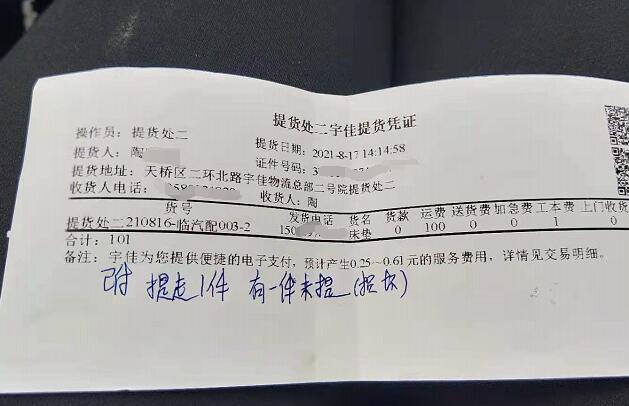 提货处二宇佳提货凭证
操作员: 提货处二
提货日期: 2021-8-17 14:14:58
提货人: 陶
证件号码: 3
提货地址: 天桥区二环北路宇佳物流总部二号院提货处二
收货人电话:
收货人: 陶
货号 发货电话 货名 货款 运费 送货费 加急费 工本费 上门收货
提货处二210816-临汽配003-2 150 床垫 0 100 0 0 1 0
合计: 101
备注: 宇佳为您提供便捷的电子支付, 预计产生0.25~0.61元的服务费用, 详情见交易明细。
提走1件 有一件未提(损坏)